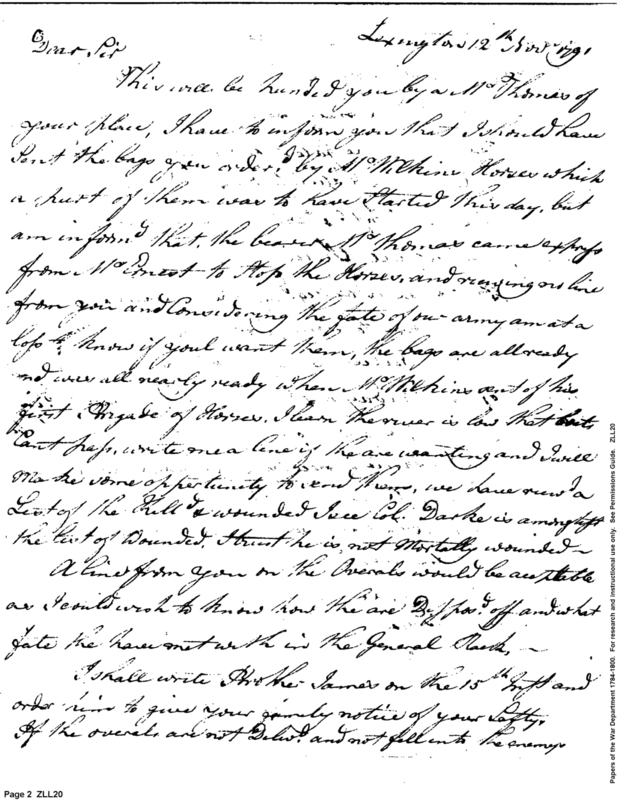 Lexington 12th Novr 1791
Dear Sir
This will be handed you by a Mr Thomas of
your place, I have to inform you that I should have
Sent the bags you order'd by Mr Wilkins Horses which
a part of them was to have Started this day, but
am inform'd that, the bearer Mr Thomas came express
from Mr Ernest to Stop the Horses, and receiving no line
from you and Considering the fate of our army am at a
loss to know if youl want them, the bags are all ready
and was all nearly ready when Mr Wilkins sent of his
first Brigade of Horses. I learn the river is low that boats
Cant pass, write me a line if the are wanting and I will
make some opportunity to send them, we have recvd a
List of the Killd & wounded I see Col. Darke is amongst
the list of Wounded. I trust he is not Mortally wounded ~
A line from you on the Overals would be acceptable
as I could wish to know how the are Disposd off and what
fate the have met with in the General
I shall write Brother James on the 15th Inst and
order him to give your family notice of your Safty.
If the overals are not Delivd and not fell into the enemys
Page 2 ZLL20
Papers of the War Department 1784-1800. For research and instructional use only. See Permissions Guide. ZLL20